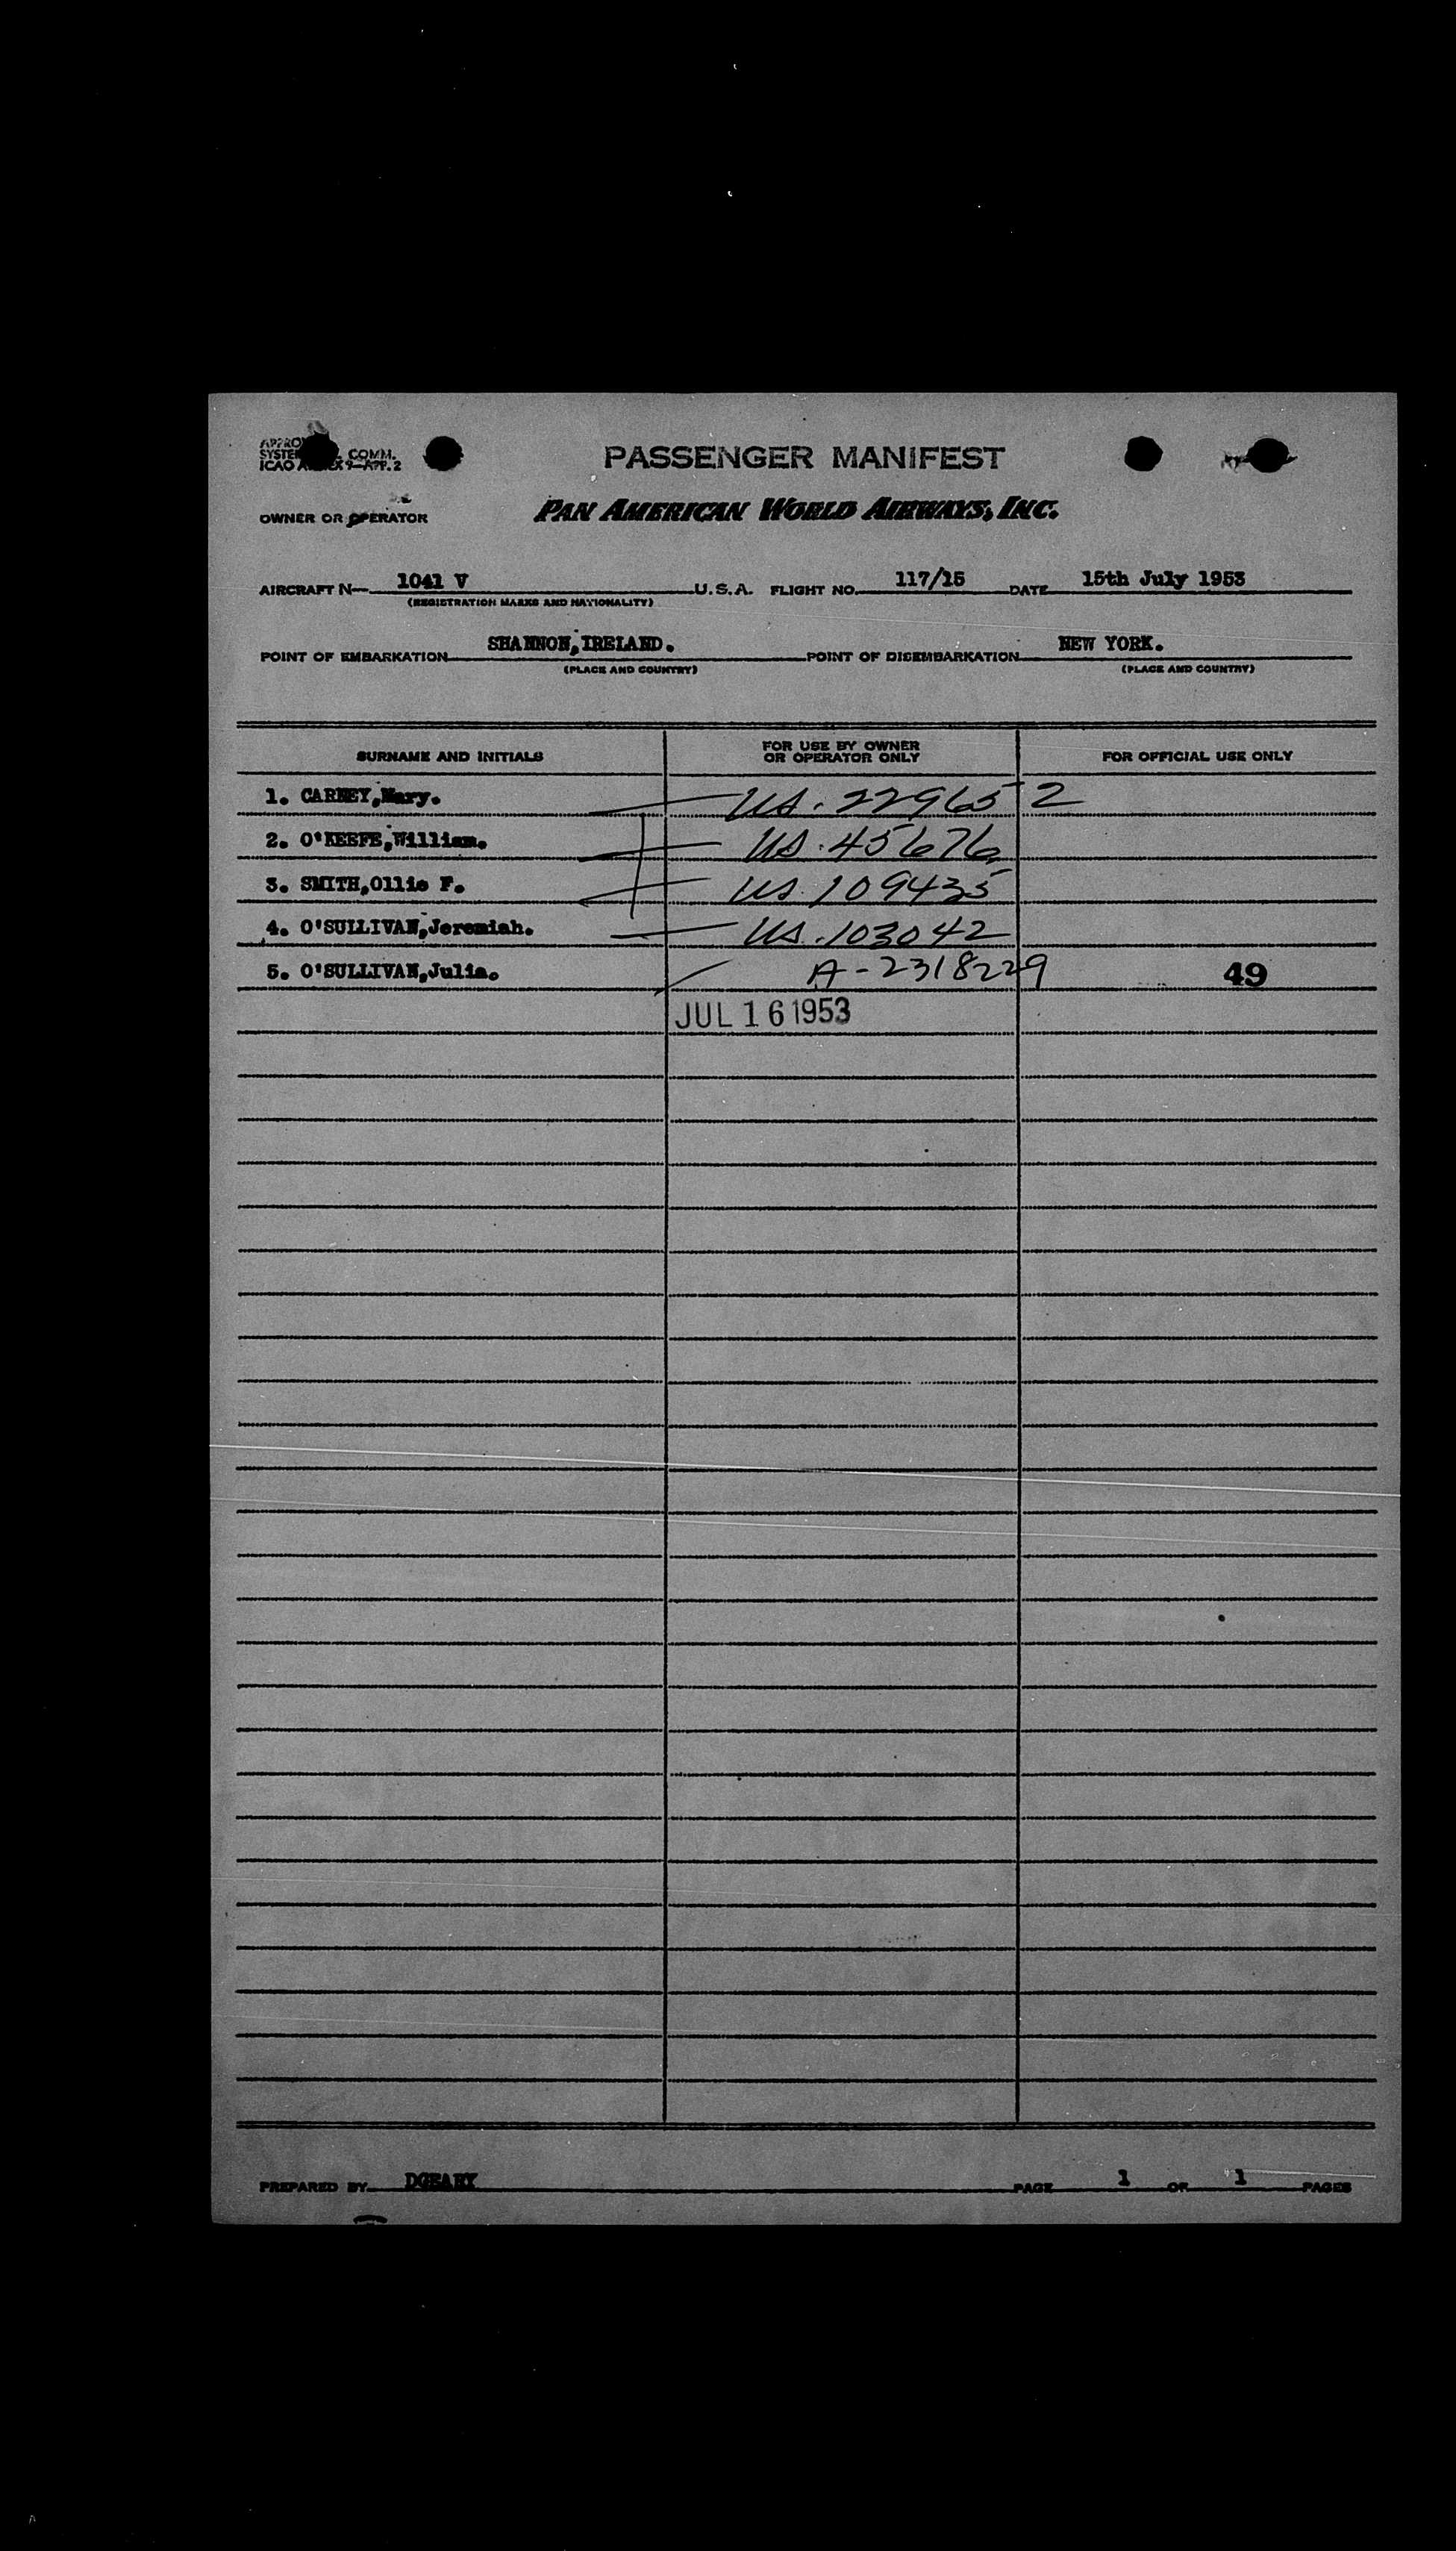 PASSENGER MANIFEST
COMM.
ICAO 9-APP. 2
OWNER OR OPERATOR PAN AMERICAN WORLD AIRWAYS, INC.
AIRCRAFT N— 1041 V U.S.A. FLIGHT NO. 117/15 DATE 15th July 1953
(REGISTRATION MARKS AND NATIONALITY)
POINT OF EMBARKATION SHANNON, IRELAND. POINT OF DISEMBARKATION NEW YORK.
(PLACE AND COUNTRY) (PLACE AND COUNTRY)
SURNAME AND INITIALS FOR USE BY OWNER OR OPERATOR ONLY FOR OFFICIAL USE ONLY
1. CARNEY,Mary. US. 229652
2. O'KEEFE,William. US. 45676
3. SMITH,Ollie F. US. 109435
4. O'SULLIVAN,Jeremiah. US. 103042
5. O'SULLIVAN,Julia. A-2318229 49
JUL 16 1953
PREPARED BY DGEARY PAGE 1 OF 1 PAGES